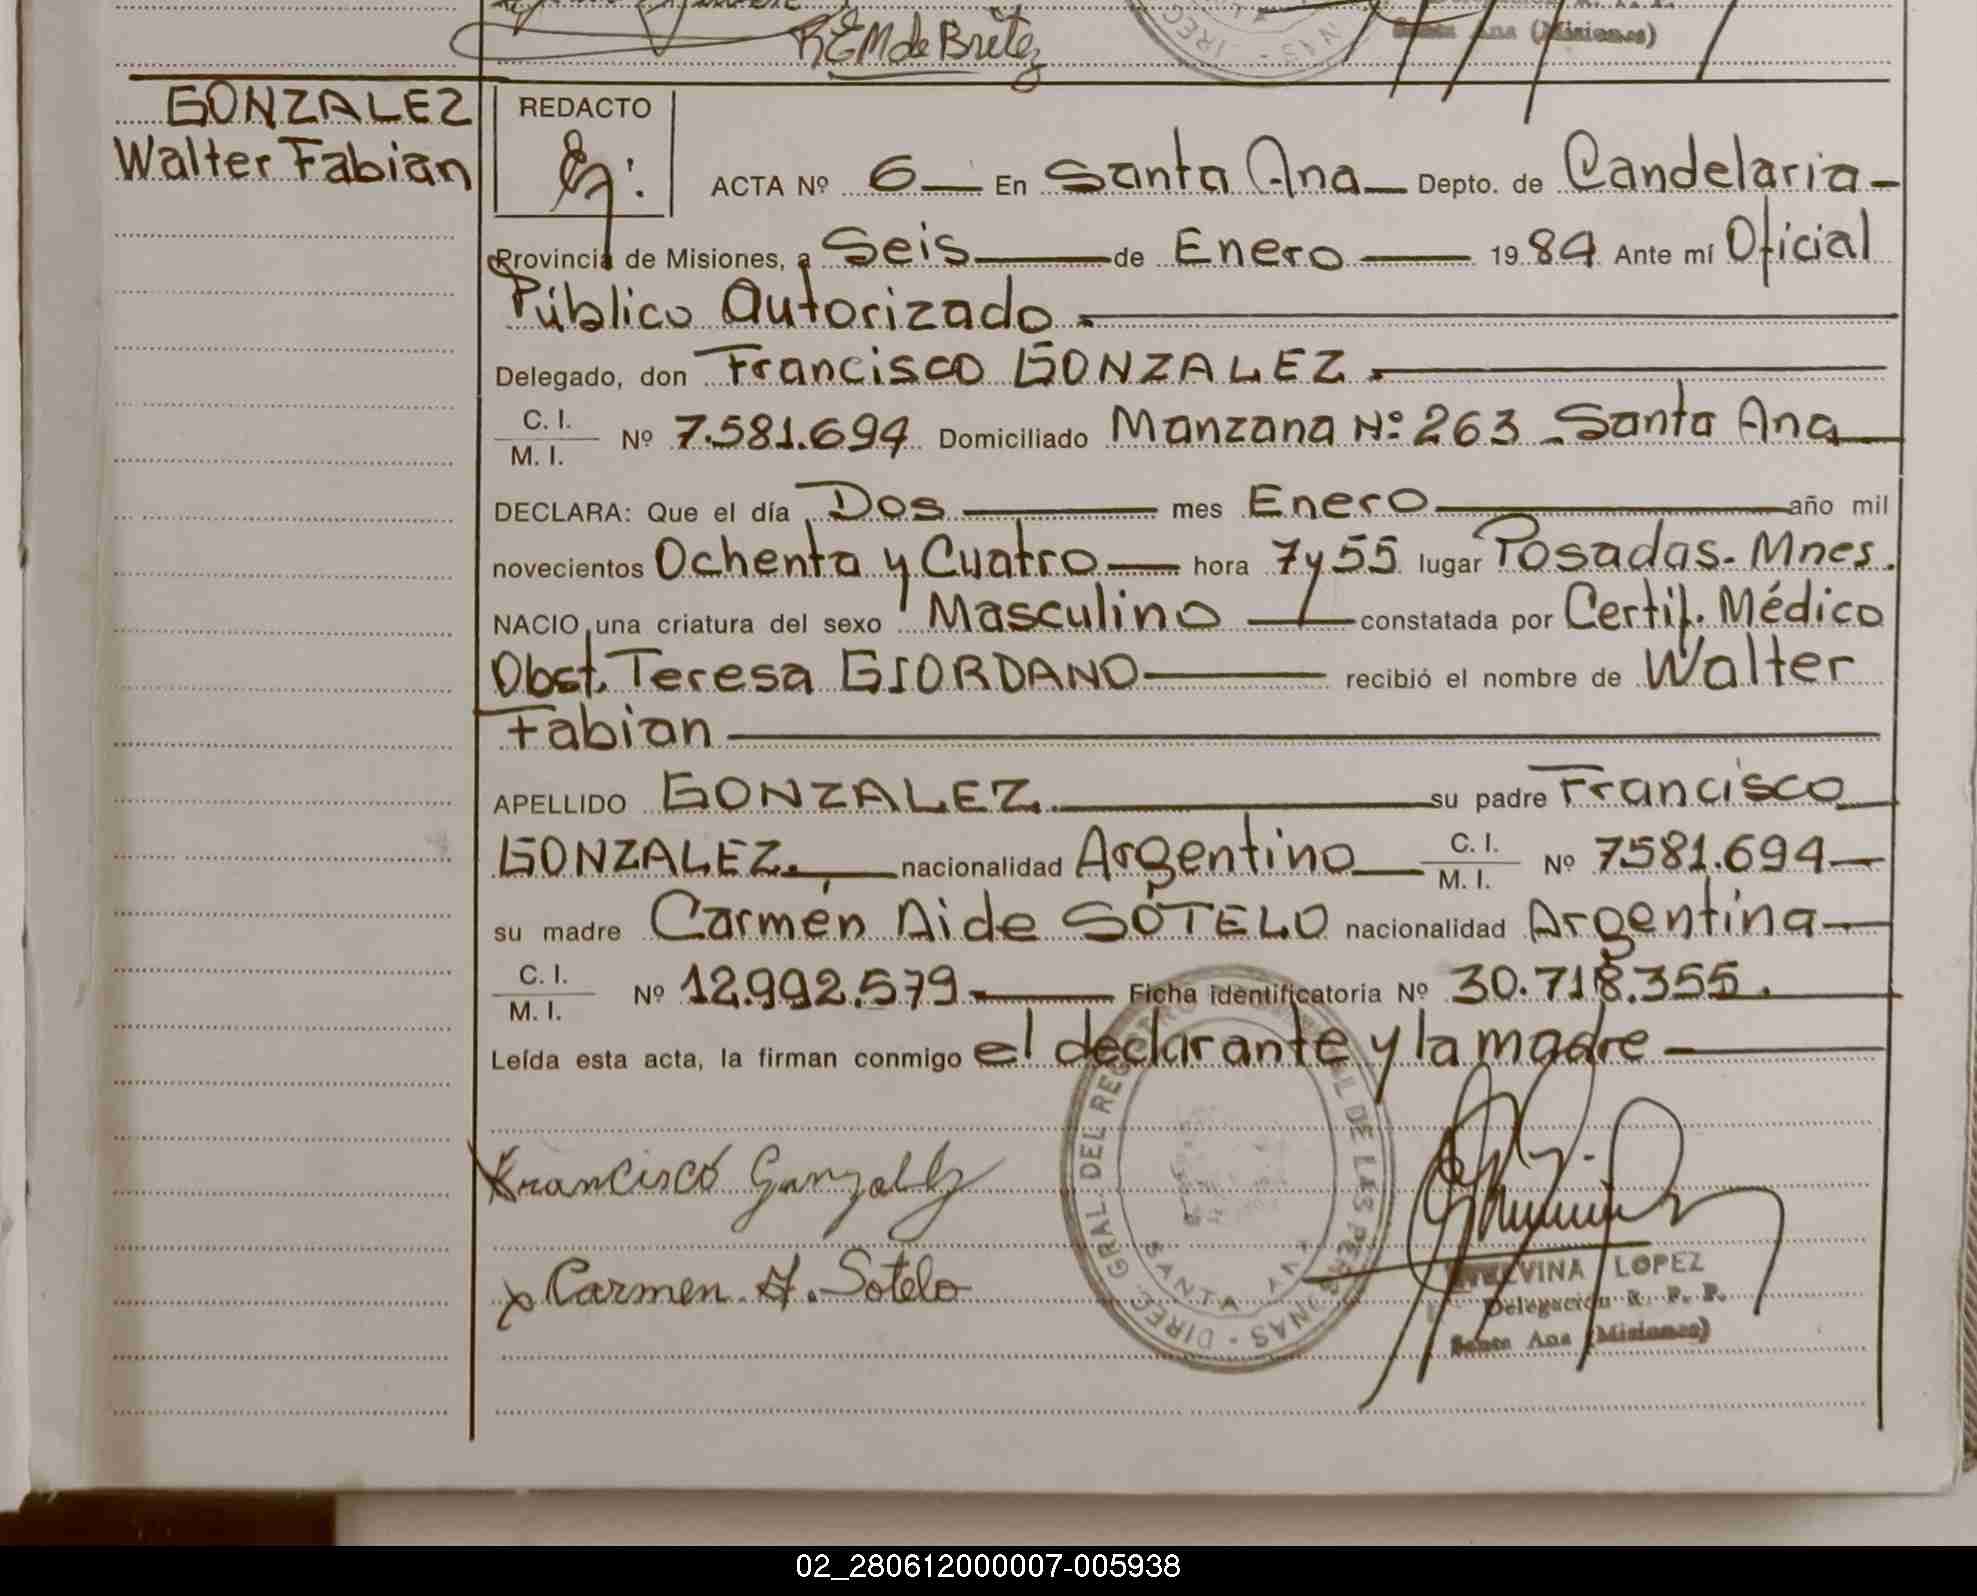 REM de Britez
Santa Ana (Misiones)
GONZALEZ
Walter Fabian
REDACTO
ACTA Nº 6 En Santa Ana Depto. de Candelaria
Provincia de Misiones, a Seis de Enero 1984 Ante mí Oficial
Público Autorizado
Delegado, don Francisco GONZALEZ
C. I.
M. I. Nº 7.581.694 Domiciliado Manzana Nº 263 Santa Ana
DECLARA: Que el día Dos mes Enero año mil
novecientos Ochenta y Cuatro hora 7 y 55 lugar Posadas. Mnes.
NACIO una criatura del sexo Masculino constatada por Certif. Médico
Obst. Teresa GIORDANO recibió el nombre de Walter
Fabian
APELLIDO GONZALEZ su padre Francisco
GONZALEZ. nacionalidad Argentino C. I. M. I. Nº 7581.694
su madre Carmén Aide SOTELO nacionalidad Argentina
C. I.
M. I. Nº 12.992.579 Ficha identificatoria Nº 30.718.355.
Leída esta acta, la firman conmigo el declarante y la madre
Francisco Gonzalez
x Carmen A. Sotelo
DIREC. GRAL DEL REGISTRO DE LAS PERSONAS
SANTA ANA
LOPEZ
Delegación R. P. P.
Santa Ana (Misiones)
02_280612000007-005938